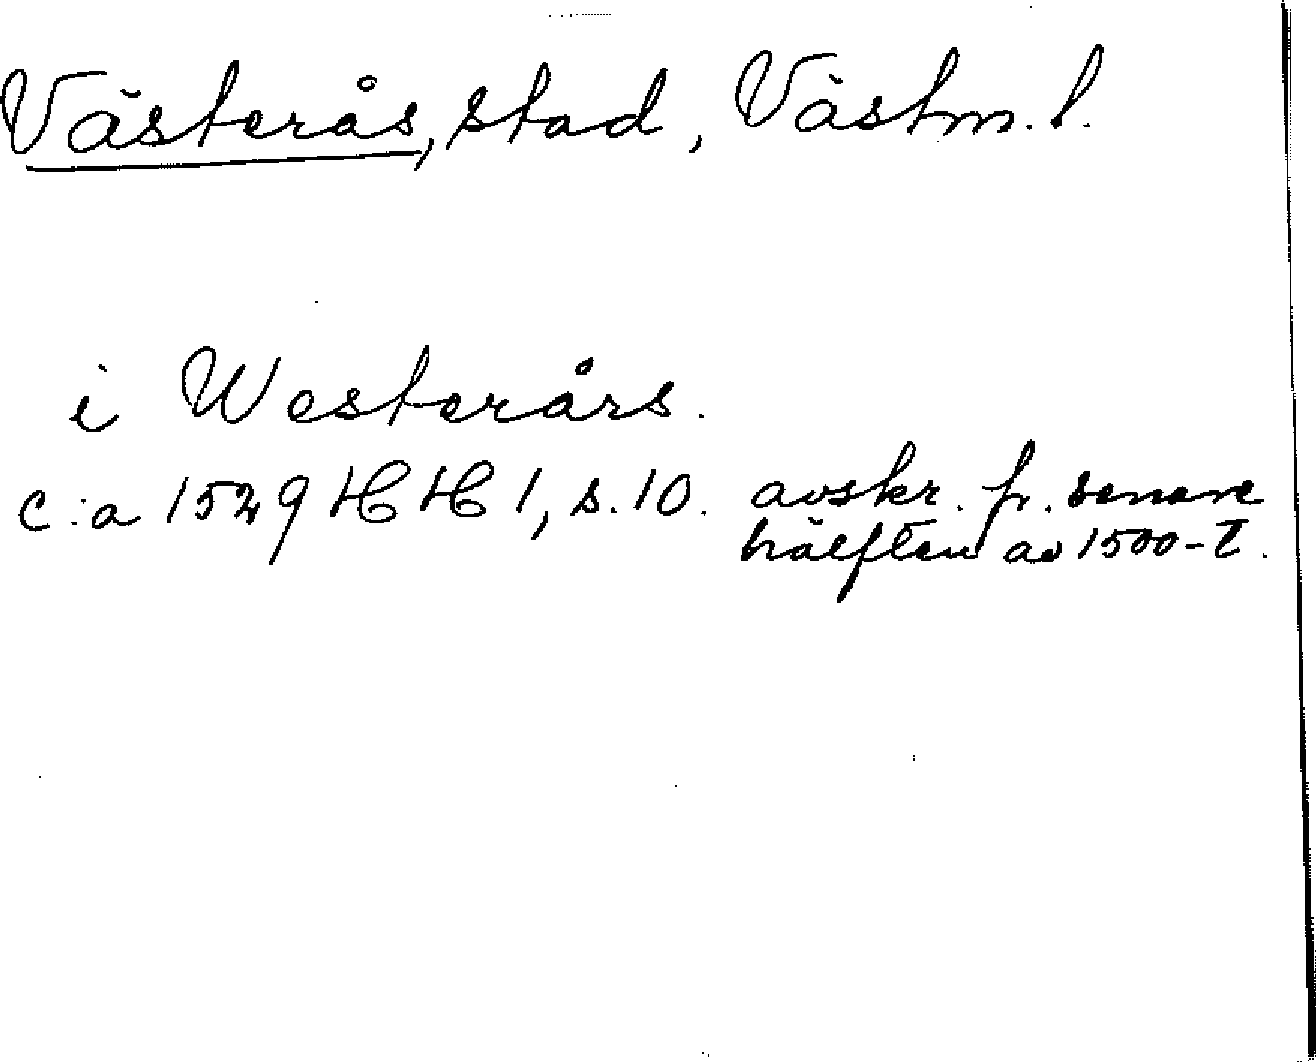 Västerås, stad, Västm. l.
i Westerårs.
c:a 1529 HH 1, s. 10. avskr. fr. senare
hälften av 1500-t.